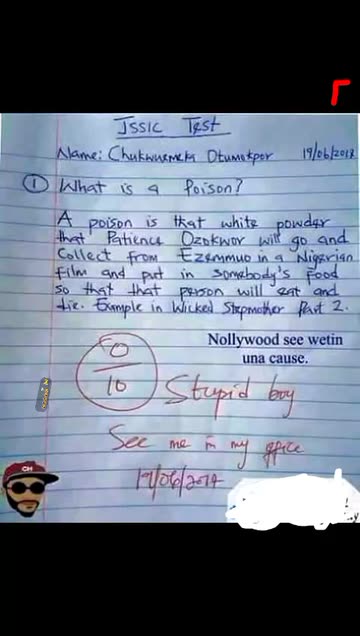 JSS1C Test
Name: Chukwuemeka Otumokpor 19/06/2013
① What is a Poison?
A poison is that white powder
that Patience Ozokwor will go and
Collect from Ezemmuo in a Nigerian
film and put in somebody's food
so that that person will eat and
die. Example in Wicked Stepmother Part 2.
Nollywood see wetin
una cause.
0
10
Stupid boy
See me in my office
19/06/2014
CH